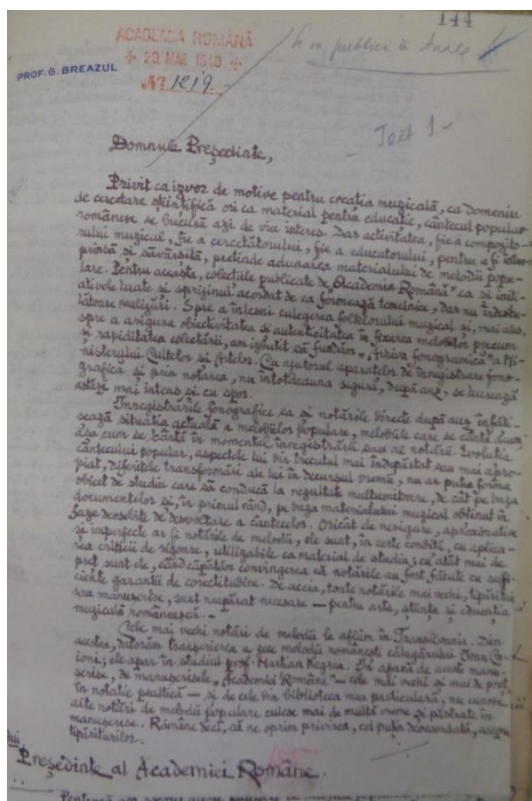 144
ACADEMIA ROMÂNĂ
29. MAR. 1940
PROF. G. BREAZUL
Nº 1219.-
se va publica în Anale
Text 1-
Domnule Președinte,
Privit ca izvor de motive pentru creația muzicală, ca domeniu
de cercetare științifică ori ca material pentru educație, cântecul popular
românesc se bucură azi de viu interes. Dar activitatea, fie a compozito-
rului muzical, fie a cercetătorului, fie a educatorului, pentru a fi
prinsă și săvârșită, pretinde adunarea materialului de melodii popu-
lare. Pentru aceasta, colecțiile publicate de "Academia Română" ca și iniți-
ativele luate și sprijinul acordat de ea formează temeinice, dar nu îndestu-
lătoare neajunsuri. Spre a înlesni culegerea folklorului muzical și, mai ales,
spre a asigura obiectivitatea și autenticitatea în fixarea melodiilor precum
și rapiditatea colectării, am izbutit să fundăm "Arhiva fonogramică" a Mi-
nisterului Cultelor și Artelor. Cu ajutorul aparatelor de înregistrare fono-
grafică și prin notarea, nu întotdeauna sigură, după auz, se lucrează
astăzi mai intens și cu spor.
Înregistrările fonografice ca și notările directe după auz înfăți-
șează situația actuală a melodiilor populare, melodiile care se cântă
așa cum se cântă în momentul înregistrării sau al notării. Evoluția
cântecului popular, aspectele lui din trecutul mai îndepărtat sau mai apro-
piat, diferitele transformări ale lui în decursul vremii, nu ar putea forma
obiect de studiu care să conducă la rezultate mulțumitoare, de cât pe baza
documentelor și, în primul rând, pe baza materialului muzical obținut în
faze deosebite de desvoltare a cântecelor. Oricât de nesigure, aproximative
și imperfecte ar fi notările de melodii, ele sunt, în certe condiții, cu aplica-
rea criticii de rigoare, utilizabile ca material de studiu; cu atât mai de
preț sunt ele, când căpătăm convingerea că notările au fost făcute cu sufi-
ciente garanții de corectitudine. De aceia, toate notările mai vechi, tipărite
sau manuscrise, sunt neapărat necesare - pentru arta, știința și educația
muzicală românească. -
Cele mai vechi notări de melodii le aflăm în Transilvania. Din
acestea, datorăm transcrierea a zece melodii românești călugărului Ioan Ca-
ioni; ele apar în studiul prof. Marțian Negrea. În afară de aceste manu-
scrise, de manuscrisele "Academiei Române" - cele mai vechi și mai de preț,
în notație psaltică - și de cele din biblioteca mea particulară, nu cunosc
alte notări de melodii populare culese mai de multă vreme și păstrate în
manuscrise. Rămâne deci, să ne oprim privirea, cel puțin deocamdată, asupra
tipăriturilor.
lui
Președinte al Academiei Române.